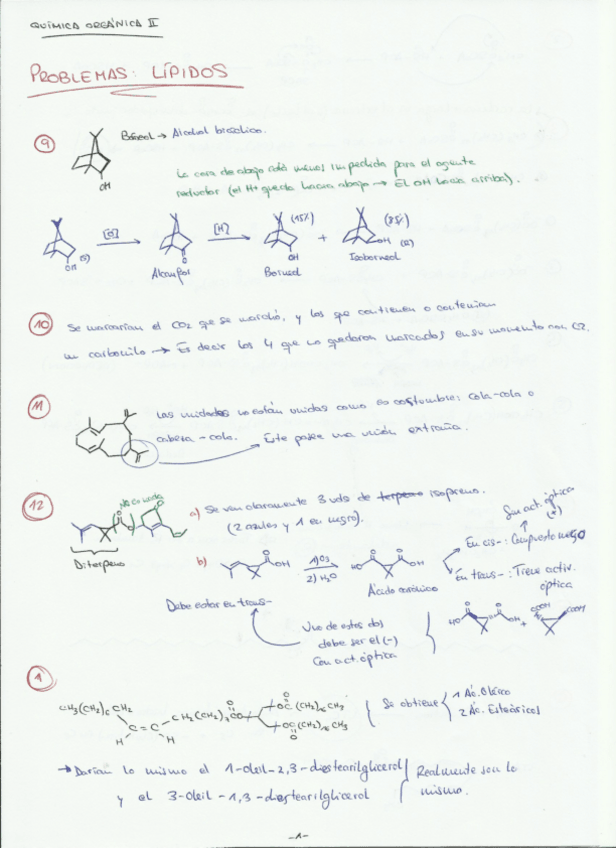 QUÍMICA ORGÁNICA II
PROBLEMAS: LÍPIDOS
9
Borneol → Alcohol bicíclico.
OH
La cara de abajo está menos impedida para el agente
reductor (el H+ queda hacia abajo → El OH hacia arriba).
OH (S) [O] O [H] (15%) OH + (85%) OH (R)
Alcanfor Borneol Isoborneol
10
Se marcarían el CO2 que se marchó, y los que contienen o contenían
un carbonilo → Es decir los 4 que no quedaron marcados en su momento con C2.
11
Las unidades no están unidas como es costumbre: cola-cola o
cabeza-cola. Este posee una unión extraña.
12
a) Se ven claramente 3 uds de isopreno.
(2 azules y 1 en negro).
Diterpeno
b) OH 1) O3 2) H2O HO OH
Ácido
En cis-: Compuesto meso
Sin act. óptica
En trans-: Tiene activ.
óptica
Debe estar en trans-
Uno de estos dos
debe ser el (-)
Con act. óptica
HO OH + COOH COOH
1
CH3(CH2)6CH2 C=C H H CH2(CH2)5CO OC(CH2)16CH3 OC(CH2)16CH3
Se obtiene 1 Ác. Oléico
2 Ác. Esteáricos
→ Darían lo mismo el 1-oleil-2,3-diestearilglicerol
y el 3-oleil-1,3-diestearilglicerol
Realmente son lo
mismo.
-1-